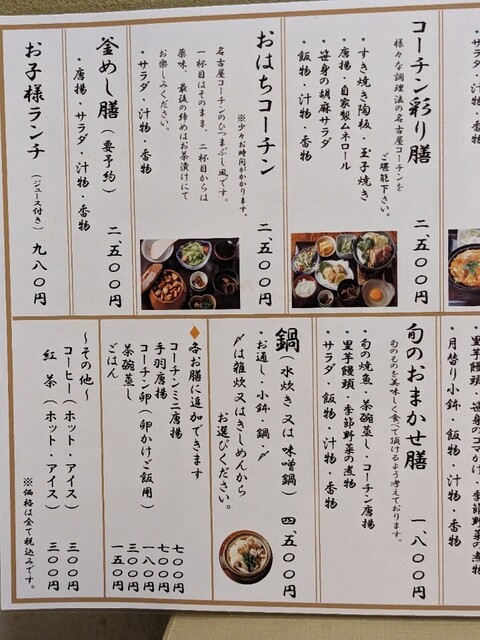 ・サラダ・
コーチン彩り膳
様々な調理法の名古屋コーチンを
ご堪能下さい。
・すき焼き陶板・玉子焼き
・唐揚・自家製ムネロール
・笹身の胡麻サラダ
・飯物・汁物・香物
二、五〇〇円
おはちコーチン
※少々お時間がかかります。
名古屋コーチンのひつまぶし風です。
一杯目はそのまま、二杯目からは
薬味、最後の締めはお茶漬けにて
お楽しみください。
・サラダ・汁物・香物
二、五〇〇円
釜めし膳（要予約）
・唐揚・サラダ・汁物・香物
二、五〇〇円
お子様ランチ（ジュース付き）
九八〇円
・里芋饅頭・季節野菜の煮物
・月替り小鉢・飯物・汁物・香物
旬のおまかせ膳
旬のものを美味しく食べて頂けるよう考えております。
・旬の焼魚・茶碗蒸し・コーチン唐揚
・里芋饅頭・季節野菜の煮物
・サラダ・飯物・汁物・香物
一、八〇〇円
鍋（水炊き又は味噌鍋）
・お通し・小鉢・鍋・〆
〆は雑炊又はきしめんから
お選びください。
四、五〇〇円
◆各お膳に追加できます
コーチンミニ唐揚 七〇〇円
手羽唐揚 七〇〇円
コーチン卵（卵かけご飯用） 一八〇円
茶碗蒸し 三〇〇円
ごはん 一五〇円
～その他～
コーヒー（ホット・アイス） 三〇〇円
紅茶（ホット・アイス） 三〇〇円
※価格は全て税込みです。